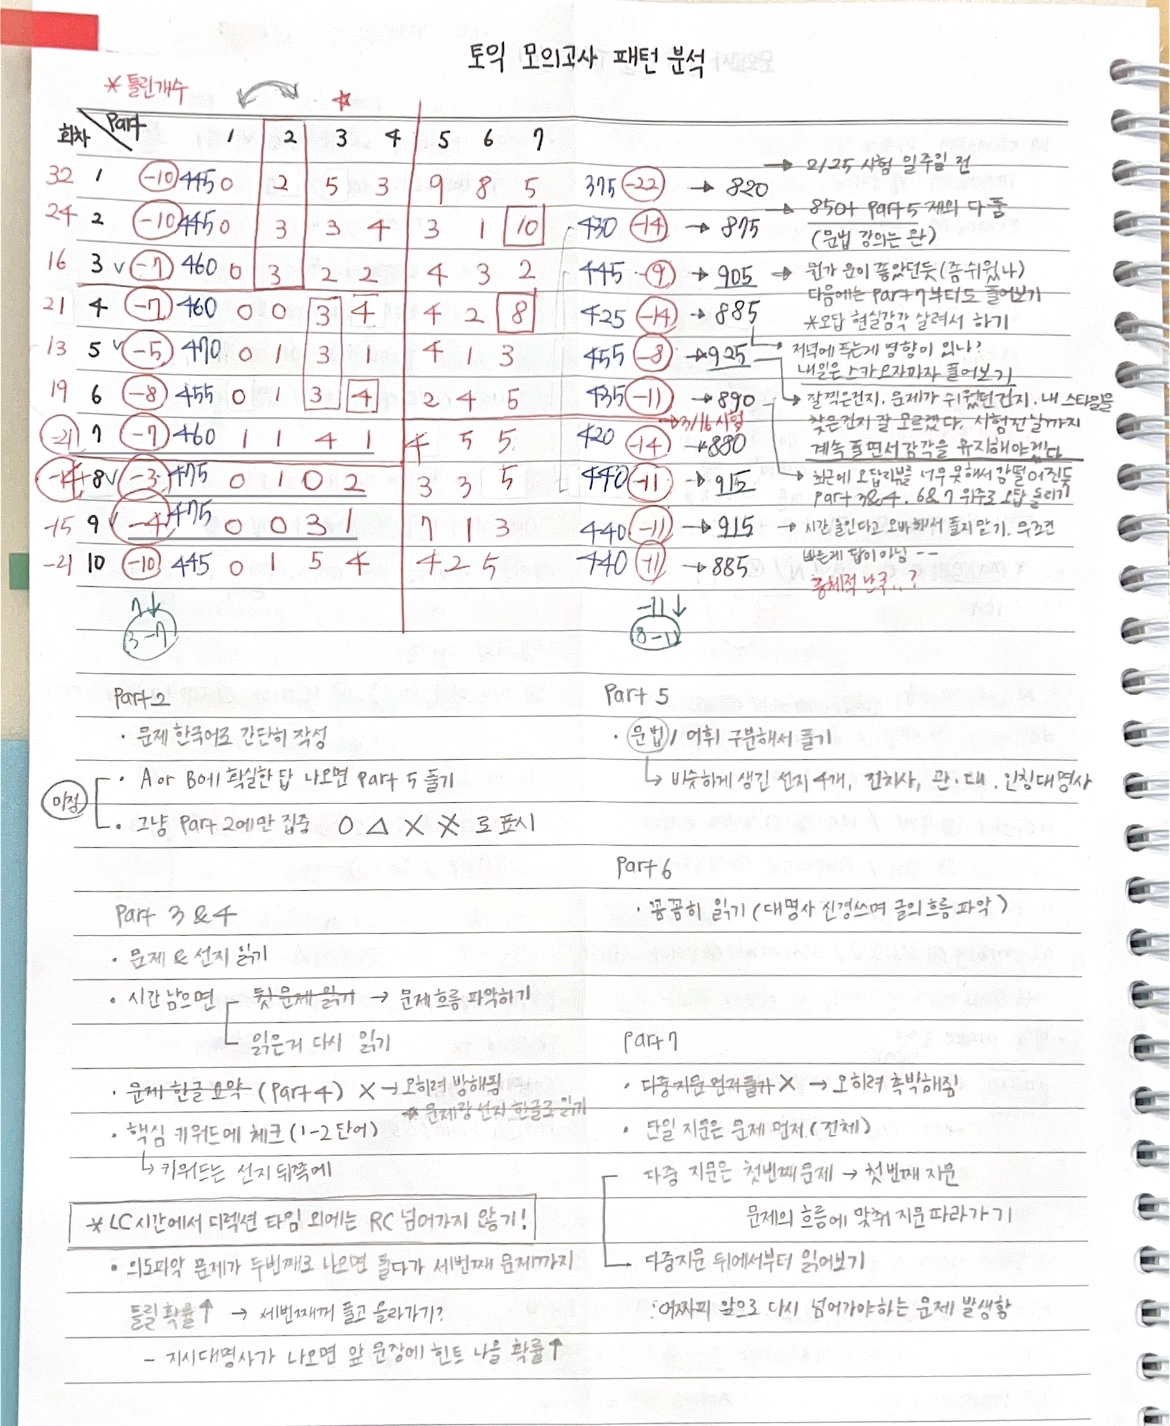 토익 모의고사 패턴 분석
* 틀린개수
회차 Part 1 2 3 4 5 6 7
32 1 -10 445 0 2 5 3 9 8 5 375 -22 → 820 → 2/25 시험 일주일 전
24 2 -10 445 0 3 3 4 3 1 10 430 -14 → 875 → 850+ Part 5 제외 다 품
(문법 강의는 완)
16 3 v -7 460 0 3 2 2 4 3 2 445 -9 → 905 → 뭔가 운이 좋았던듯 (좀 쉬웠나)
다음에는 Part 7부터도 풀어보기
21 4 -7 460 0 0 3 4 4 2 8 425 -14 → 885
*오답 현실감각 살려서 하기
13 5 v -5 470 0 1 3 1 4 1 3 455 -8 → 925
저녁에 푸는게 영향이 있나?
내일은 스카 오자마자 풀어보기
19 6 -8 455 0 1 3 4 2 4 5 435 -11 → 890 → 잘찍은건지, 문제가 쉬웠던건지, 내 스타일을
→ 3/16 시험
찾은건지 잘 모르겠다. 시험 전날까지
-21 7 -7 460 1 1 4 1 4 5 5 420 -14 → 880
계속 풀면서 감각을 유지해야겠다
-14 8 v -3 475 0 1 0 2 3 3 5 440 -11 → 915 → 최근에 오답리뷰를 너무 못해서 감 떨어진듯
Part 3&4, 6&7 위주로 오답 돌리기
-15 9 v -4 475 0 0 3 1 7 1 3 440 -11 → 915 → 시간 줄인다고 오바해서 풀지 말기. 무조건
빠른게 답이 아님 --
-21 10 -10 445 0 1 5 4 4 2 5 440 -11 → 885
총체적 난국..?
7↓
3-7
-11↓
8-11
Part 2
· 문제 한국어로 간단히 작성
미정
· A or B에 확실한 답 나오면 Part 5 풀기
· 그냥 Part 2에만 집중 O △ X ※ 로 표시
Part 3 & 4
· 문제 & 선지 읽기
· 시간 남으면 뒷 문제 읽기 → 문제 흐름 파악하기
읽은거 다시 읽기
· 문제 한글 요약 (Part 4) X → 오히려 방해됨
* 문제랑 선지 한글로 읽기
· 핵심 키워드에 체크 (1-2 단어)
↳ 키워드는 선지 뒤쪽에
* LC 시간에서 디렉션 타임 외에는 RC 넘어가지 않기!
· 의도파악 문제가 두번째로 나오면 풀다가 세번째 문제까지
틀릴 확률↑ → 세번째꺼 풀고 올라가기?
- 지시대명사가 나오면 앞 문장에 힌트 나올 확률↑
Part 5
· 문법 / 어휘 구분해서 풀기
↳ 비슷하게 생긴 선지 4개, 전치사, 관·대, 인칭대명사
Part 6
· 꼼꼼히 읽기 (대명사 신경쓰며 글의 흐름 파악)
Part 7
· 다중지문 먼저 풀기 X → 오히려 촉박해짐
· 단일 지문은 문제 먼저 (전체)
다중 지문은 첫번째 문제 → 첫번째 지문
문제의 흐름에 맞춰 지문 따라가기
다중지문 뒤에서부터 읽어보기
∵ 어짜피 앞으로 다시 넘어가야하는 문제 발생함